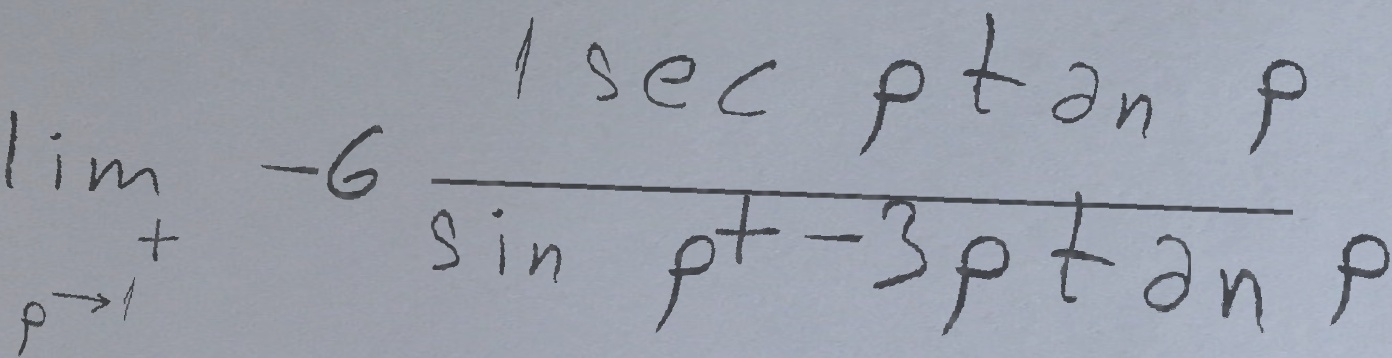 \lim_{p \to 1^+} -6 \frac{1 \sec p \tan p}{\sin p^+ - 3p \tan p}